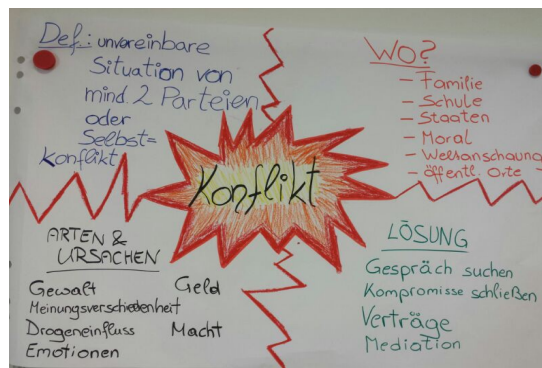 Def.: unvereinbare
Situation von
mind. 2 Parteien
oder
Selbst=
Konflikt
WO?
- Familie
- Schule
- Staaten
- Moral
- Weltanschauung
- öffentl. Orte
Konflikt
ARTEN &
URSACHEN
Gewalt Geld
Meinungsverschiedenheit
Drogeneinfluss Macht
Emotionen
LÖSUNG
Gespräch suchen
Kompromisse schließen
Verträge
Mediation